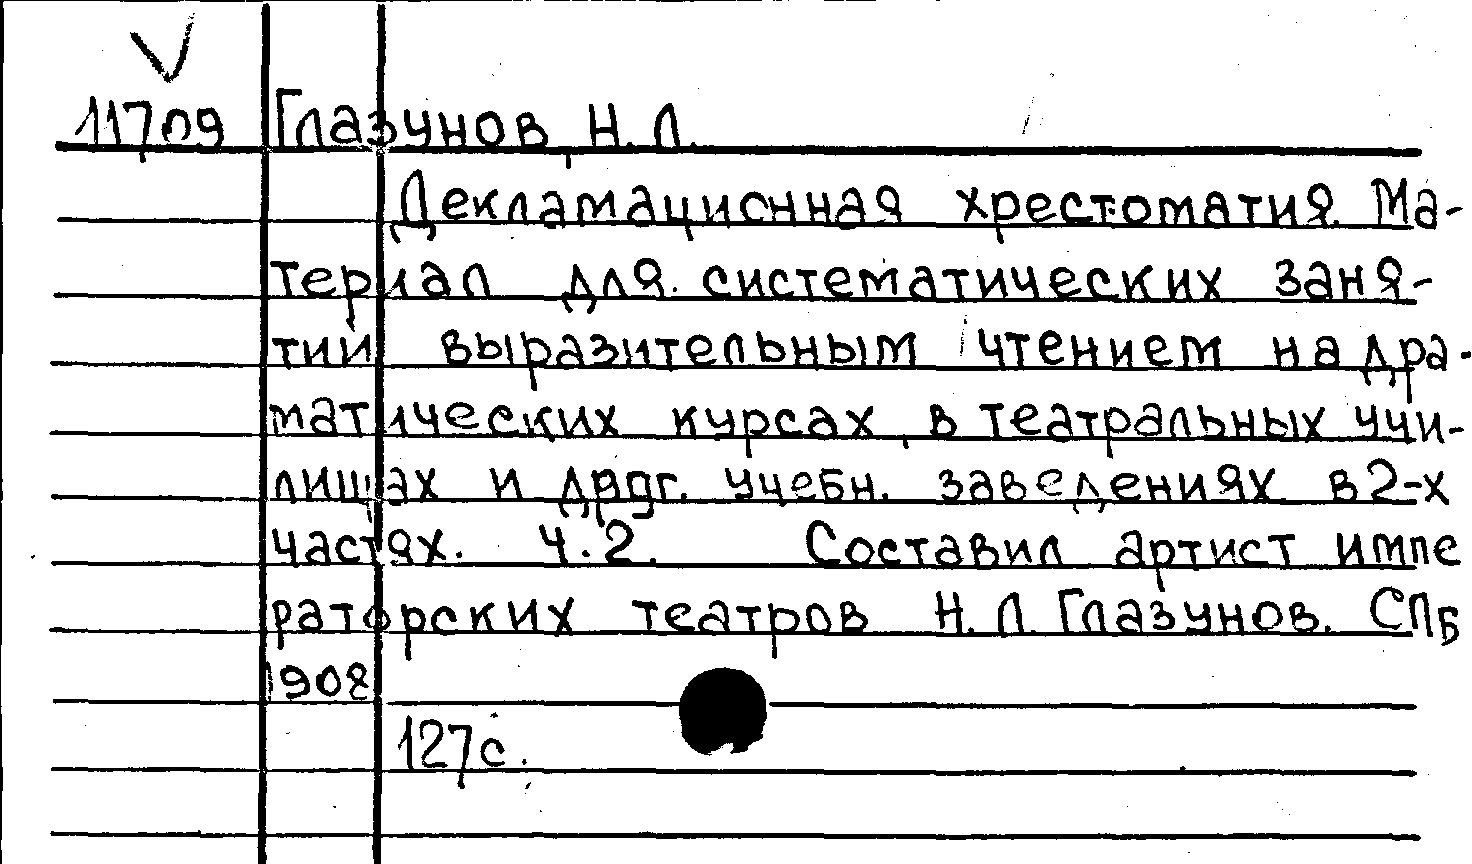 11709 Глазунов, Н. Л.
Декламационная хрестоматия. Ма-
териал для систематических заня-
тий выразительным чтением на дра-
матических курсах, в театральных учи-
лищах и друг. учебн. заведениях в 2-х
частях. Ч. 2. Составил артист импе
раторских театров Н. Л. Глазунов. СПб
1908
127с.